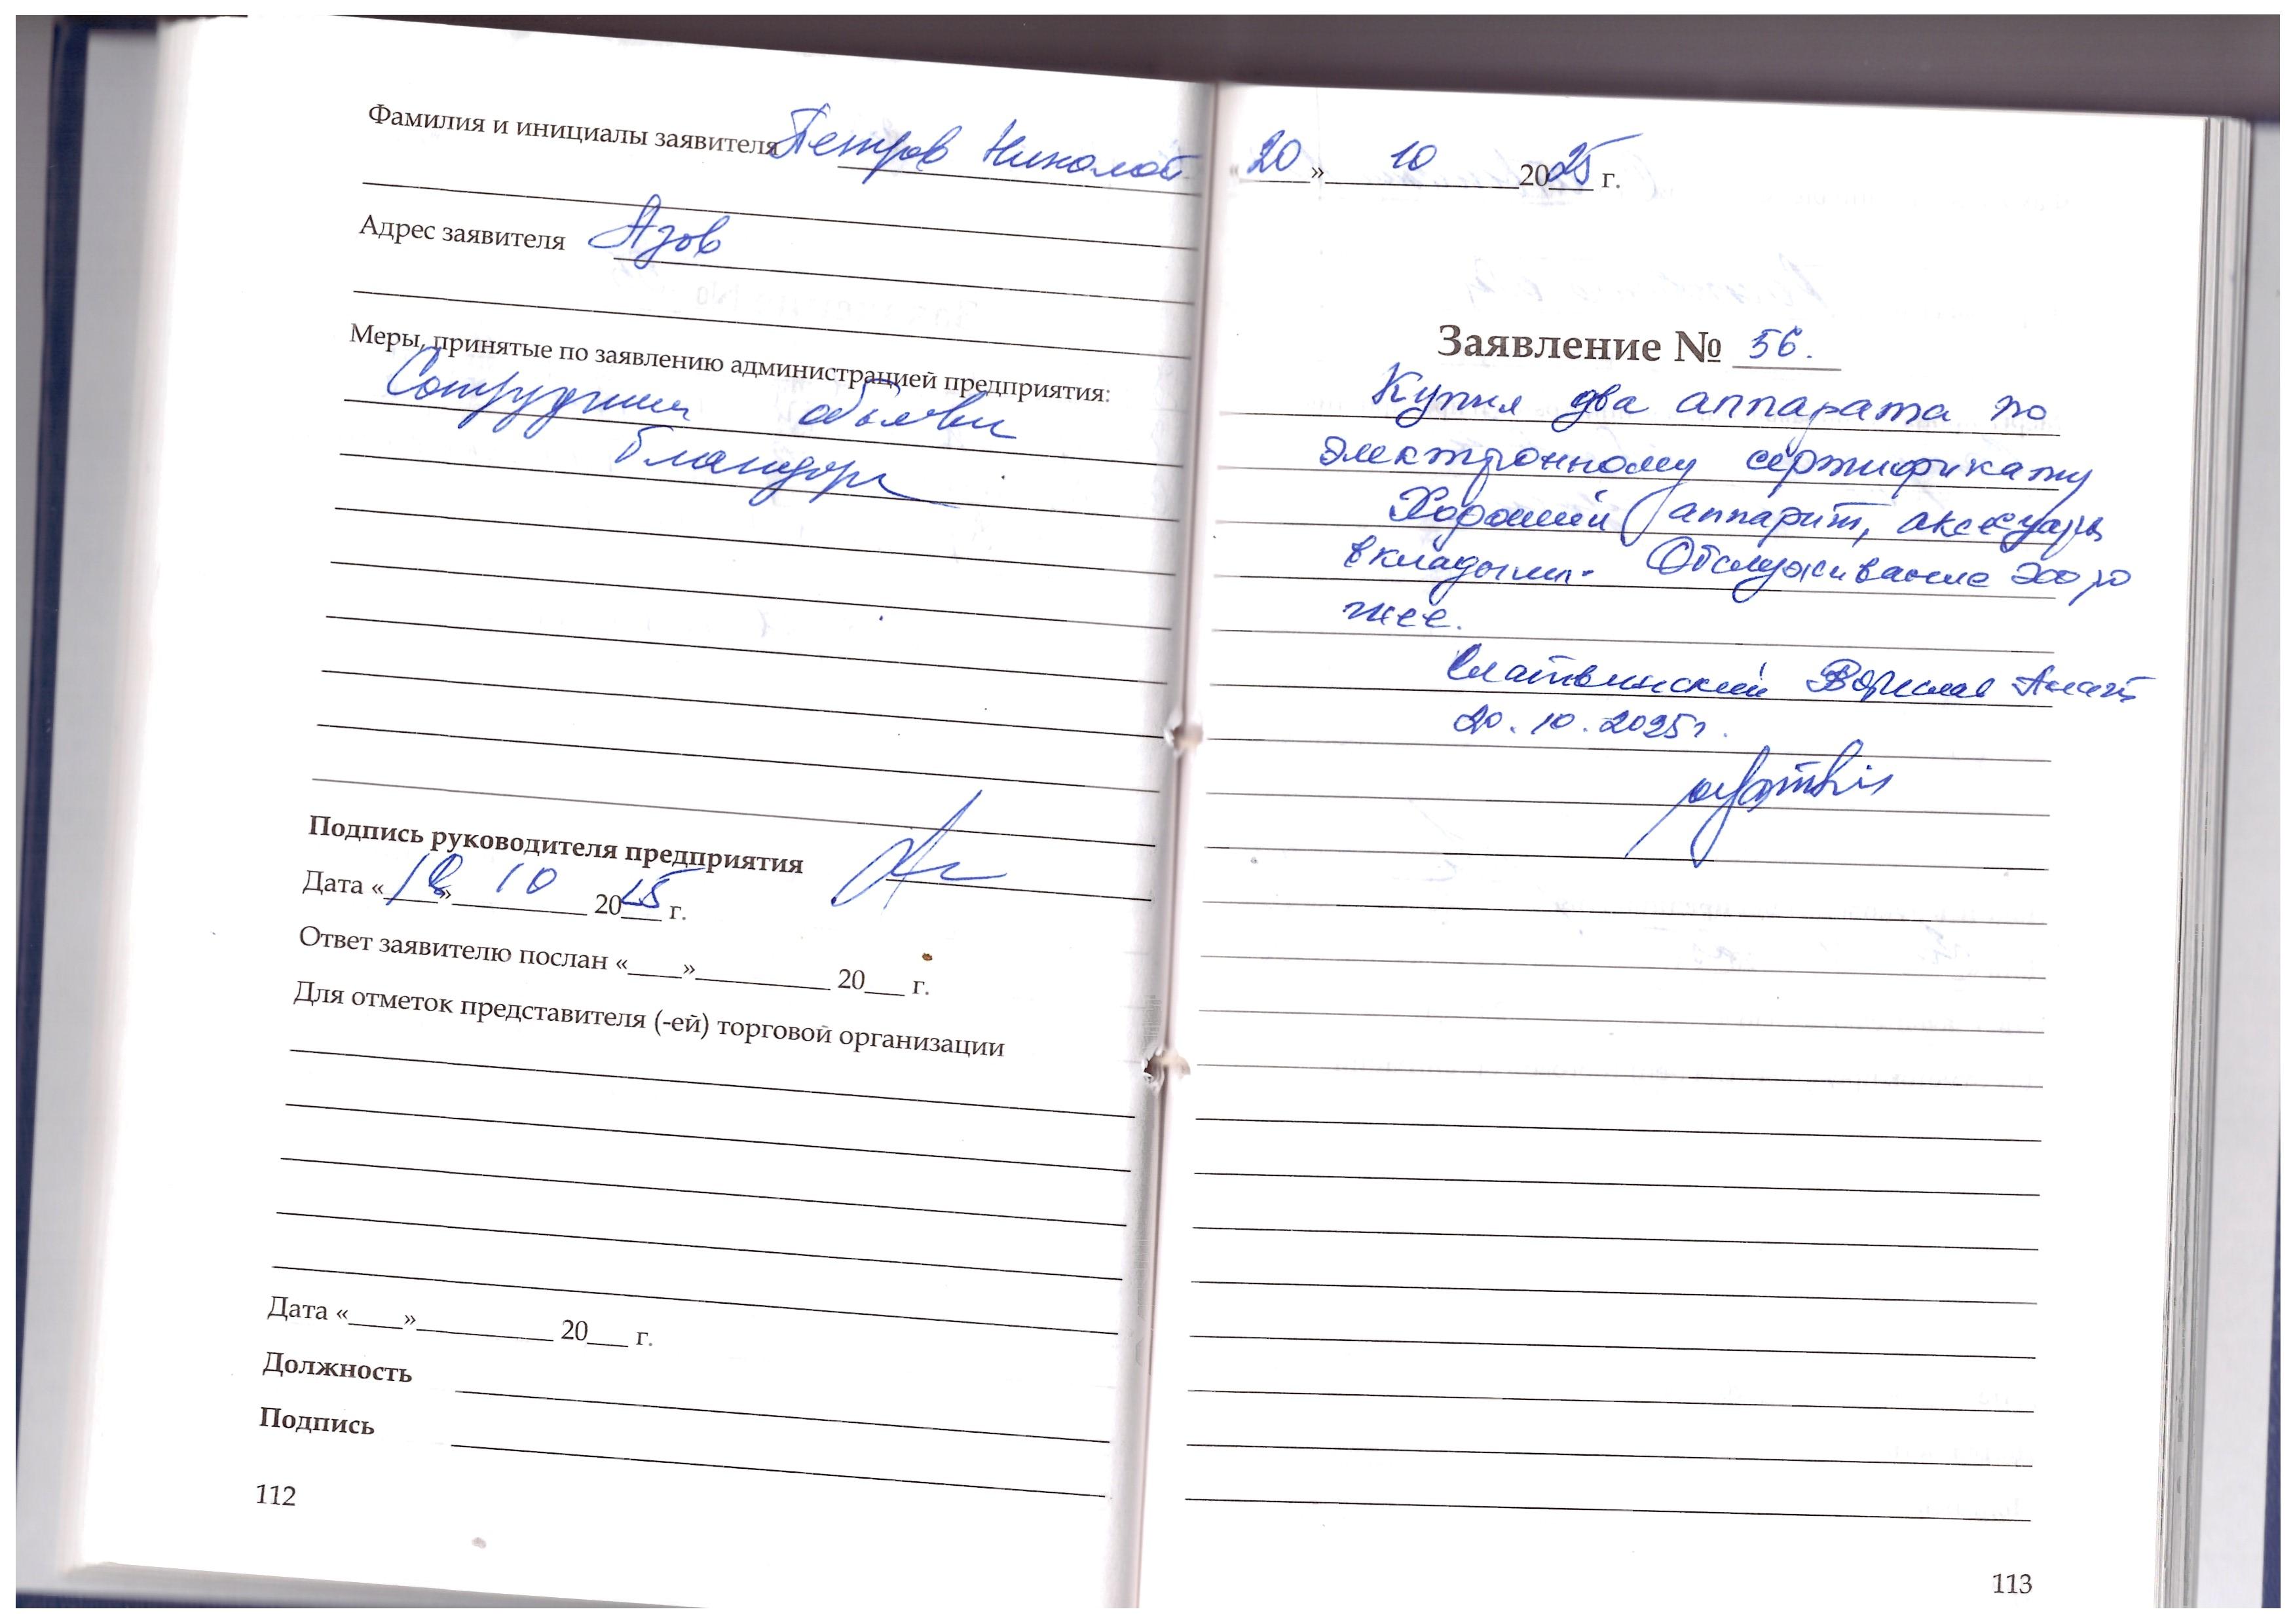 Фамилия и инициалы заявителя Петров Николай
Адрес заявителя Азов
Меры, принятые по заявлению администрацией предприятия:
Сотрудники объяви
Подпись руководителя предприятия
Дата «18» 10 2025 г.
Ответ заявителю послан «____»__________ 20___ г.
Для отметок представителя (-ей) торговой организации
Дата «____»__________ 20___ г.
Должность
Подпись
112
«20» 10 2025 г.
Заявление № 56.
Купил два аппарата по
электронному сертификату
Хороший аппарат, аксесуары
вкладыши. Обслуживание хоро
шее.
20.10.2025г.
113